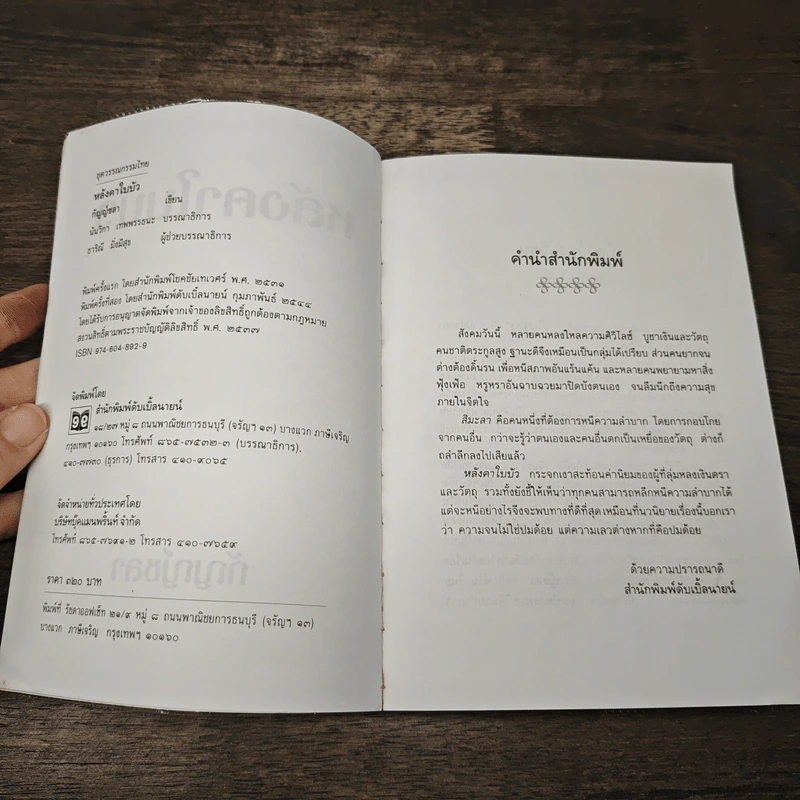 ชุดวรรณกรรมไทย
หลังคาใบบัว
กัญญ์ชลา เขียน
นันวิภา เทพพรรธนะ บรรณาธิการ
ธาริณี มิ่งมีสุข ผู้ช่วยบรรณาธิการ
พิมพ์ครั้งแรก โดยสำนักพิมพ์โชคชัยเทเวศร์ พ.ศ. ๒๕๓๑
พิมพ์ครั้งที่สอง โดยสำนักพิมพ์ดับเบิ้ลนายน์ กุมภาพันธ์ ๒๕๔๔
โดยได้รับการอนุญาตจัดพิมพ์จากเจ้าของลิขสิทธิ์ถูกต้องตามกฎหมาย
สงวนสิทธิ์ตามพระราชบัญญัติลิขสิทธิ์ พ.ศ. ๒๕๓๗
ISBN 974-604-892-9
จัดพิมพ์โดย
สำนักพิมพ์ดับเบิ้ลนายน์
๑๘/๒๗ หมู่ ๘ ถนนพาณิชยการธนบุรี (จรัญฯ ๑๓) บางแวก ภาษีเจริญ
กรุงเทพฯ ๑๐๑๖๐ โทรศัพท์ ๘๖๕-๗๕๓๒-๓ (บรรณาธิการ).
๔๑๐-๗๗๓๐ (ธุรการ) โทรสาร ๔๑๐-๙๐๖๕
จัดจำหน่ายทั่วประเทศโดย
บริษัทบุ๊คแมนพริ้นท์ จำกัด
โทรศัพท์ ๘๖๕-๗๖๙๑-๒ โทรสาร ๔๑๐-๗๖๕๙
ราคา ๓๒๐ บาท
พิมพ์ที่ รัชดาออฟเซ็ท ๒๑/๙ หมู่ ๘ ถนนพาณิชยการธนบุรี (จรัญฯ ๑๓)
บางแวก ภาษีเจริญ กรุงเทพฯ ๑๐๑๖๐
คำนำสำนักพิมพ์
สังคมวันนี้ หลายคนหลงใหลความศิวิไลซ์ บูชาเงินและวัตถุ
คนชาติตระกูลสูง ฐานะดีจึงเหมือนเป็นกลุ่มได้เปรียบ ส่วนคนยากจน
ต่างต้องดิ้นรน เพื่อหนีสภาพอันแร้นแค้น และหลายคนพยายามหาสิ่ง
ฟุ้งเฟ้อ หรูหราอันฉาบฉวยมาปิดบังตนเอง จนลืมนึกถึงความสุข
ภายในจิตใจ
สิมะลา คือคนหนึ่งที่ต้องการหนีความลำบาก โดยการกอบโกย
จากคนอื่น กว่าจะรู้ว่าตนเองและคนอื่นตกเป็นเหยื่อของวัตถุ ต่างก็
ถลำลึกลงไปเสียแล้ว
หลังคาใบบัว กระจกเงาสะท้อนค่านิยมของผู้ที่ลุ่มหลงเงินตรา
และวัตถุ รวมทั้งยังชี้ให้เห็นว่าทุกคนสามารถหลีกหนีความลำบากได้
แต่จะหนีอย่างไรจึงจะพบทางที่ดีที่สุด เหมือนที่นวนิยายเรื่องนี้บอกเรา
ว่า ความจนไม่ใช่ปมด้อย แต่ความเลวต่างหากที่คือปมด้อย
ด้วยความปรารถนาดี
สำนักพิมพ์ดับเบิ้ลนายน์